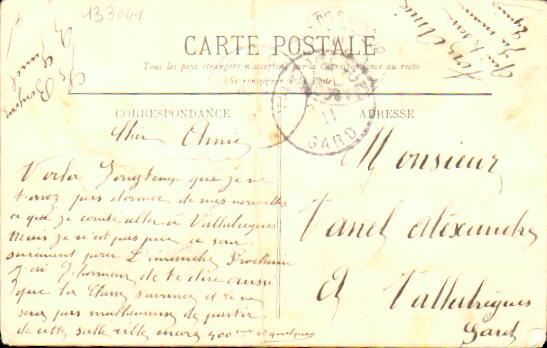 133041
CARTE POSTALE
Tous les pays étrangers n'acceptent pas la Correspondance au recto
(Se renseigner à la Poste)
CORRESPONDANCE
ADRESSE
GARD
Cher Amie
Voila longtemps que je ne
t'avez pas donner de mes nouvelles
ce que je comte aller à Vallabrègues
Mais je n'est pas pue ce sera
surement pour Dimanche Prochain
J'ai l'honneur de te dire aussi
que la Classe s'avance et je ne
serez pas malheureux de partir
de cette salle ville encore 400 et quelques
Monsieur
Vanel Alexandre
A Vallabrègues
Gard
Ton Amie